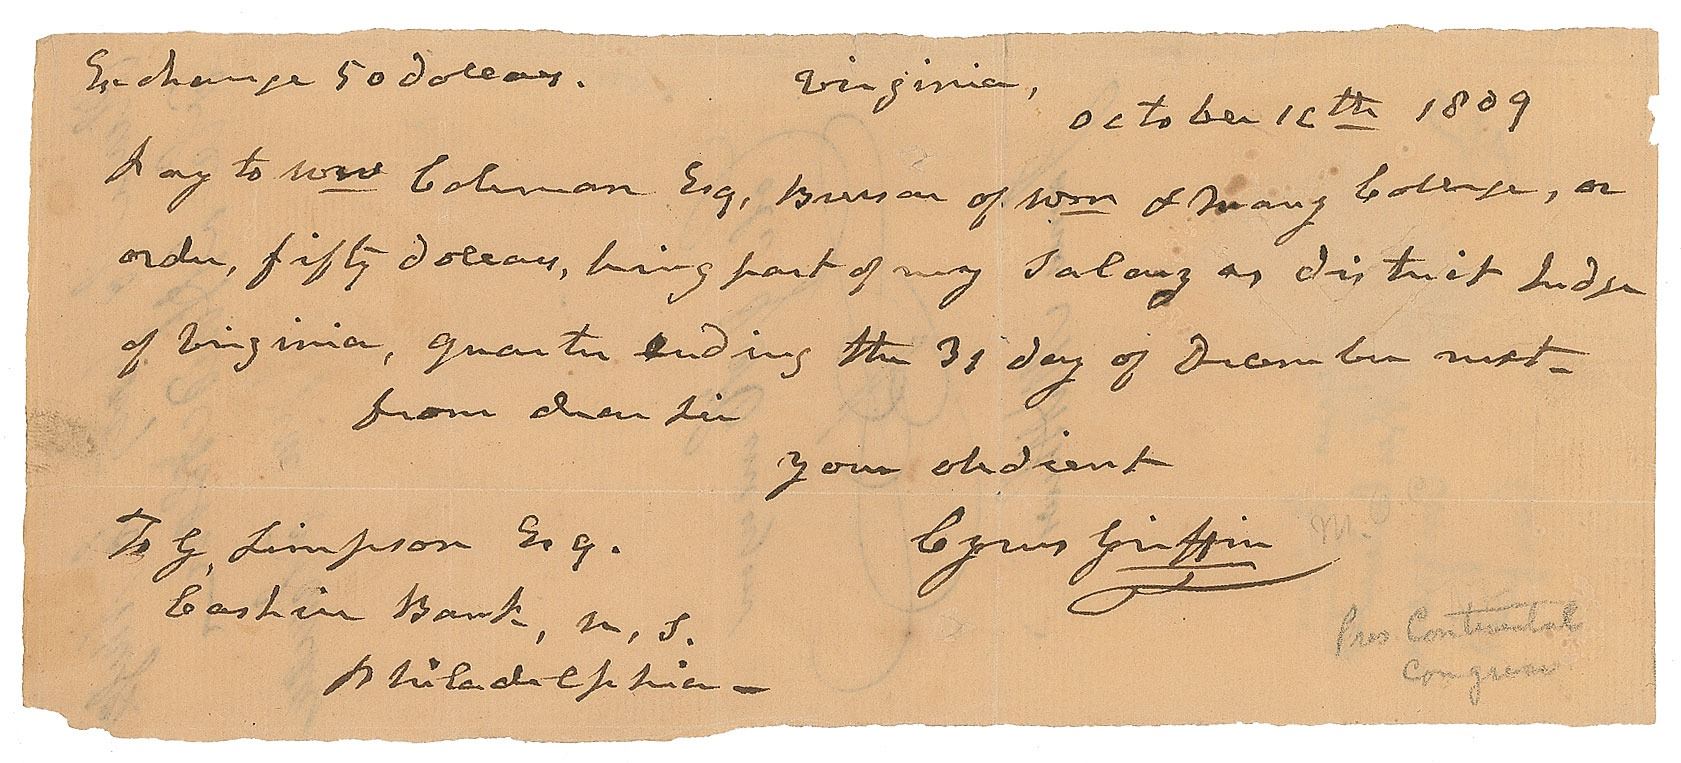 Exchange 50 dollars. Virginia,
October 16th 1809
Pay to Wm Coleman Esq, Bursar of Wm & Mary College, or
order, fifty dollars, being part of my Salary as district Judge
of Virginia, quarter ending the 31 day of December next—
from dear Sir
your obedient
Cyrus Griffin
To G, Simpson Esq.
Cashier Bank, U, S.
Philadelphia—
M.
Pres Continental
Congress